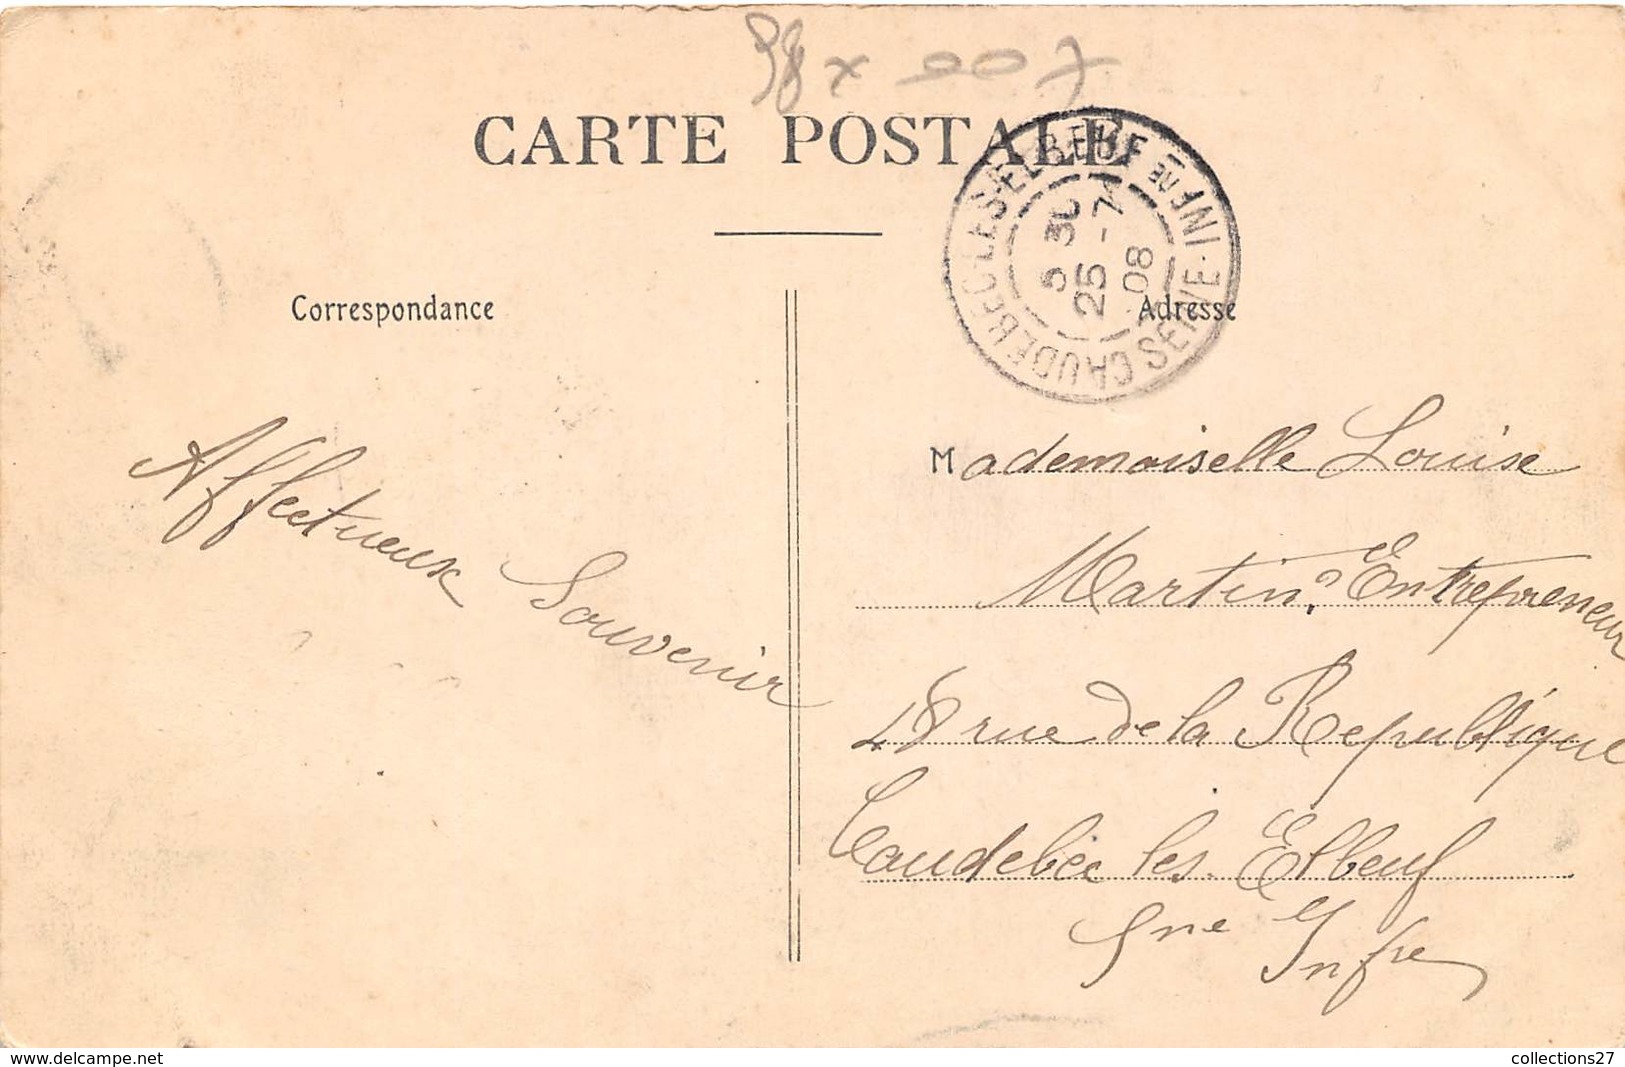 CARTE POSTALE
CAUDEBEC-LES-ELBEUF
SEINE-INFRE
5 30
25 -7
08
Correspondance
Adresse
Affectueux Souvenir
Mademoiselle Louise
Martin, Entrepreneur
48 rue de la Republique
Caudebec les Elbeuf
Sne Infre
www.delcampe.net
collections27